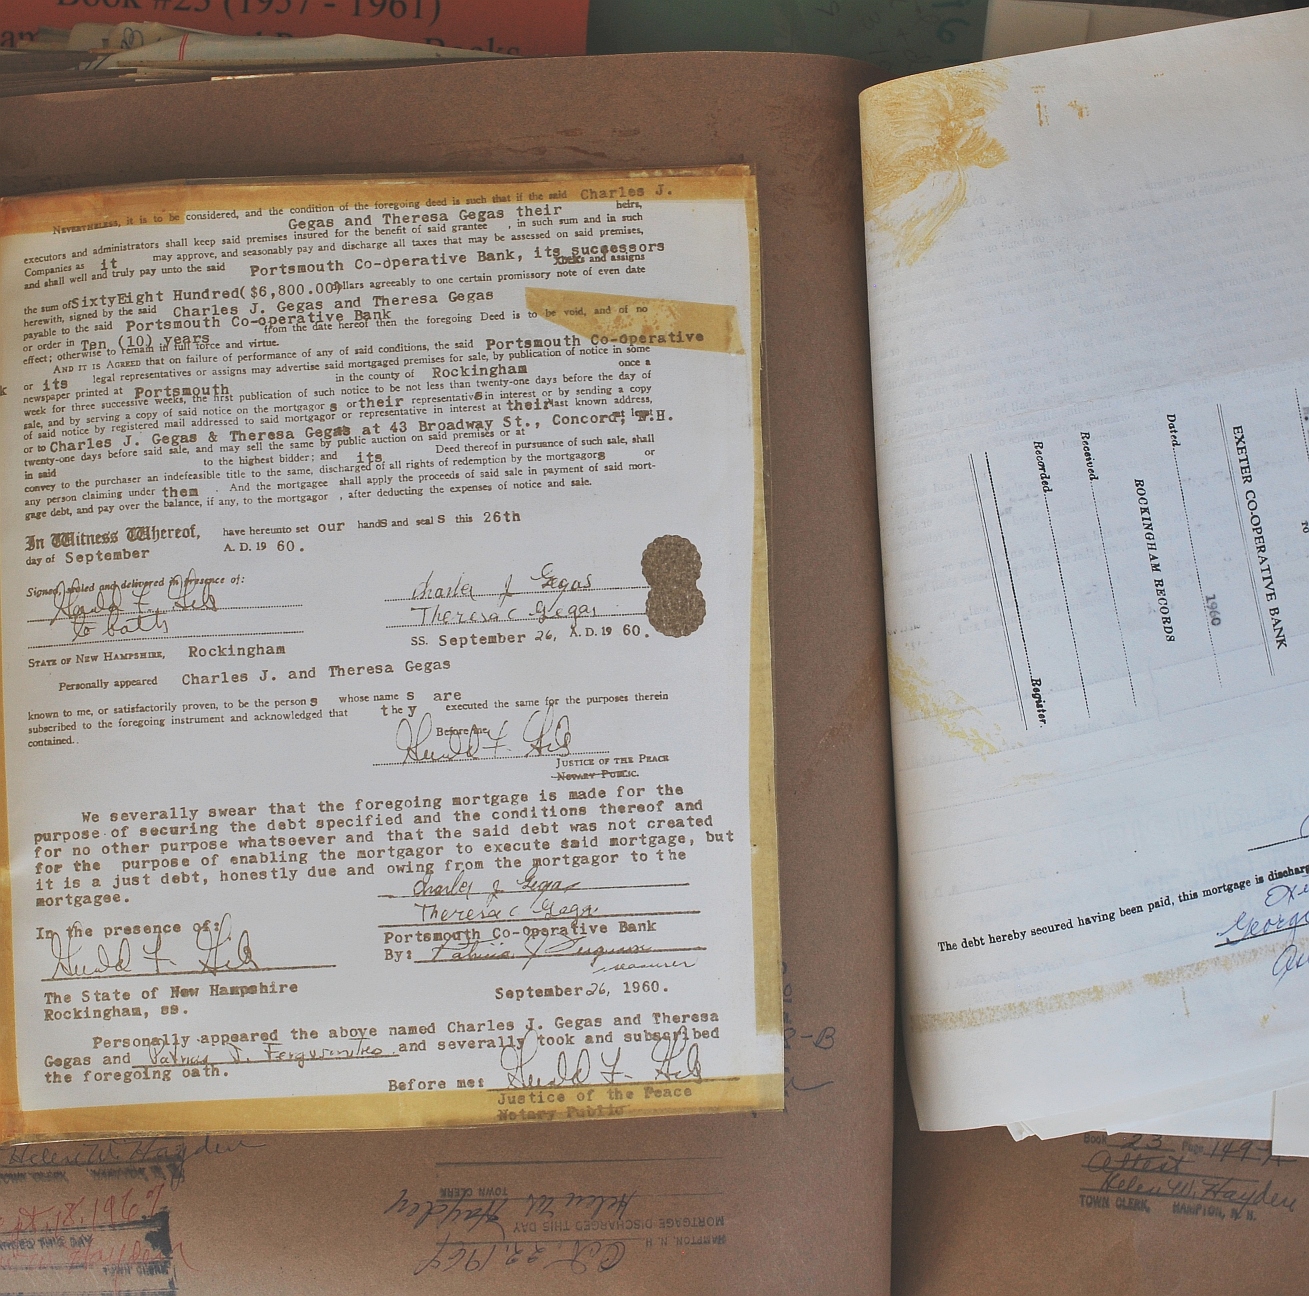 Book #23 (1957 - 1961)
Books
NEVERTHELESS, it is to be considered, and the condition of the foregoing deed is such that if the said Charles J.
Gegas and Theresa Gegas their heirs,
executors and administrators shall keep said premises insured for the benefit of said grantee , in such sum and in such
Companies as it may approve, and seasonably pay and discharge all taxes that may be assessed on said premises,
and shall well and truly pay unto the said Portsmouth Co-operative Bank, its successors
and assigns
the sum of SixtyEight Hundred($6,800.00) dollars agreeably to one certain promissory note of even date
herewith, signed by the said Charles J. Gegas and Theresa Gegas
payable to the said Portsmouth Co-operative Bank
or order in Ten (10) years from the date hereof then the foregoing Deed is to be void, and of no
effect; otherwise to remain in full force and virtue.
AND IT IS AGREED that on failure of performance of any of said conditions, the said Portsmouth Co-operative
k or its legal representatives or assigns may advertise said mortgaged premises for sale, by publication of notice in some
newspaper printed at Portsmouth in the county of Rockingham once a
week for three successive weeks, the first publication of such notice to be not less than twenty-one days before the day of
sale, and by serving a copy of said notice on the mortgagor s or their representatives in interest or by sending a copy
of said notice by registered mail addressed to said mortgagor or representative in interest at their last known address,
or to Charles J. Gegas & Theresa Gegas at 43 Broadway St., Concord, N.H. at least
twenty-one days before said sale, and may sell the same by public auction on said premises or at
in said to the highest bidder; and its Deed thereof in pursuance of such sale, shall
convey to the purchaser an indefeasible title to the same, discharged of all rights of redemption by the mortgagors or
any person claiming under them . And the mortgagee shall apply the proceeds of said sale in payment of said mort-
gage debt, and pay over the balance, if any, to the mortgagor , after deducting the expenses of notice and sale.
In Witness Whereof, have hereunto set our hands and seal s this 26th
day of September A. D. 19 60.
Signed, sealed and delivered in presence of:
to both
Charles J Gegas
Theresa C Gegas
STATE OF NEW HAMPSHIRE, Rockingham SS. September 26, A. D. 19 60.
Personally appeared Charles J. and Theresa Gegas
known to me, or satisfactorily proven, to be the person s whose name s are
subscribed to the foregoing instrument and acknowledged that they executed the same for the purposes therein
contained.
Before me,
JUSTICE OF THE PEACE
NOTARY PUBLIC.
We severally swear that the foregoing mortgage is made for the
purpose of securing the debt specified and the conditions thereof and
for no other purpose whatsoever and that the said debt was not created
for the purpose of enabling the mortgagor to execute said mortgage, but
it is a just debt, honestly due and owing from the mortgagor to the
mortgagee.
Charles J Gegas
Theresa C Gegas
In the presence of: Portsmouth Co-Operative Bank
By:
Treasurer
The State of New Hampshire September 26, 1960.
Rockingham, ss.
Personally appeared the above named Charles J. Gegas and Theresa
Gegas and and severally took and subscribed
the foregoing oath.
Before me:
Justice of the Peace
Notary Public
EXETER CO-OPERATIVE BANK
TO
Dated 1960
ROCKINGHAM RECORDS
Received
Recorded
Register.
The debt hereby secured having been paid, this mortgage is discharg
8-B
Helen W. Hayden
TOWN CLERK HAMPTON, N. H.
Sept. 18, 1967
THIS DAY
TOWN CLERK
HAMPTON, N. H. Oct. 22, 1964
MORTGAGE DISCHARGED THIS DAY
Helen W. Hayden
TOWN CLERK
Book 23 Page 149-A
Attest
Helen W. Hayden
TOWN CLERK, HAMPTON, N. H.